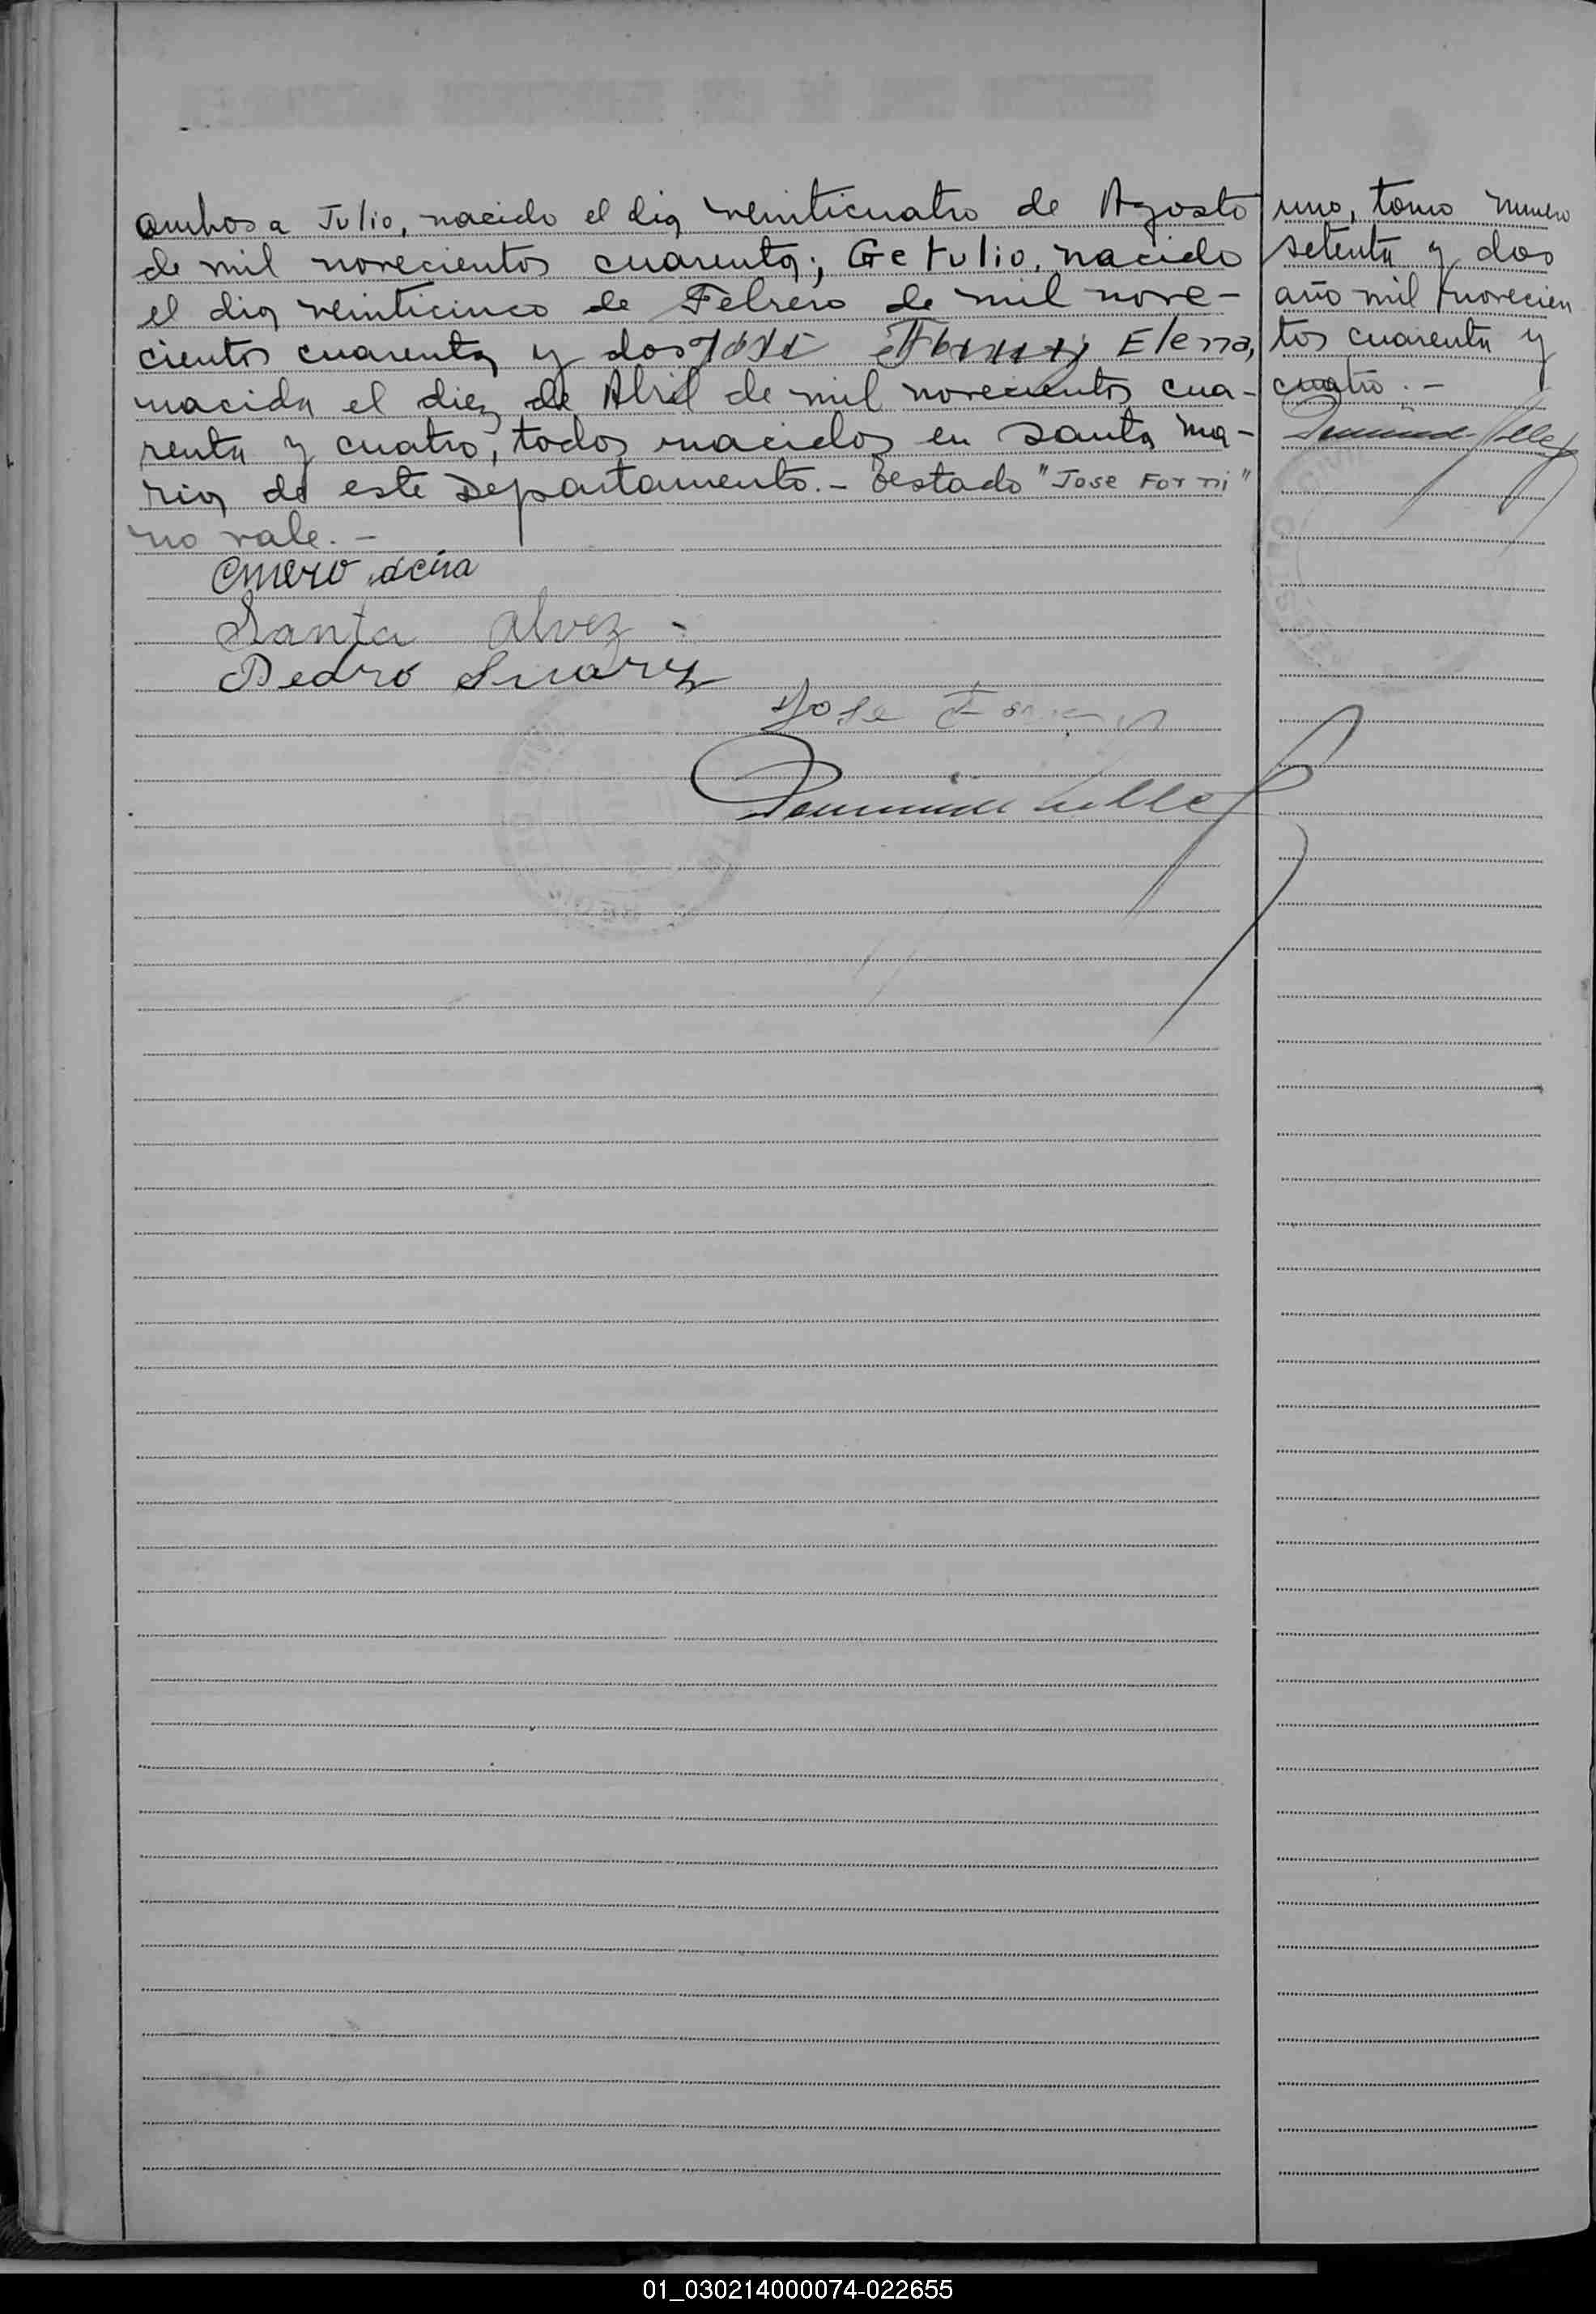 ambos a Julio, nacido el dia veinticuatro de Agosto
de mil novecientos cuarenta; Getulio, nacido
el dia veinticinco de Febrero de mil nove-
cientos cuarenta y dos José Forni y Elena,
nacida el diez de Abril de mil novecientos cua-
renta y cuatro, todos nacidos en Santa Ma-
ria de este Departamento.- Testado "Jose Forni"
no vale.-
Santa Alvez
Pedro Suarez
Jose
uno, tomo numero
setenta y dos
año mil novecien
tos cuarenta y
cuatro.-
01_030214000074-022655